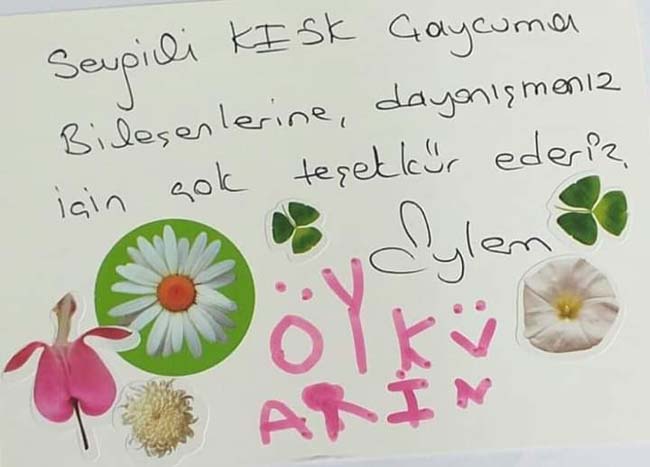 Sevgili KESK Çaycuma
Bileşenlerine, dayanışmanız
için çok teşekkür ederiz.
Eylem
ÖYKÜ
ARİN